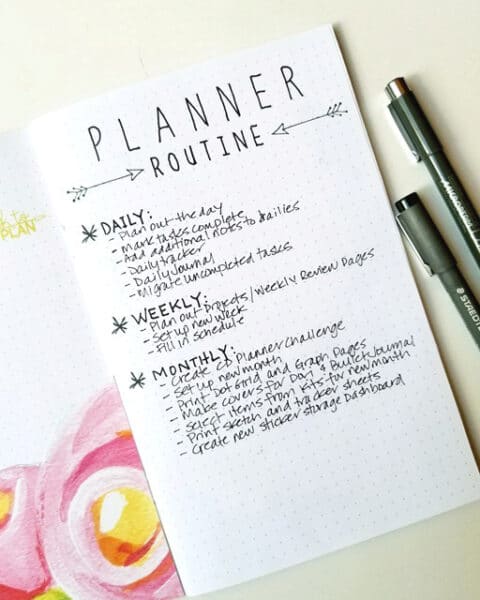 PLANNER
ROUTINE
DAILY:
- Plan out the day
- Mark tasks complete
- Add additional notes to dailies
- Daily tracker
- Daily Journal
- Migrate uncompleted tasks
WEEKLY:
- Plan out Projects/Weekly Review Pages
- Set up new week
- Fill in schedule
MONTHLY:
- Create CP Planner Challenge
- Set up new month
- Print Dot Grid and Graph Pages
- Make covers for Day 1 & Bullet Journal
- Select items from Kits for new month
- Print sketch and tracker sheets
- Create new sticker storage Dashboard
PLAN
STAEDTL